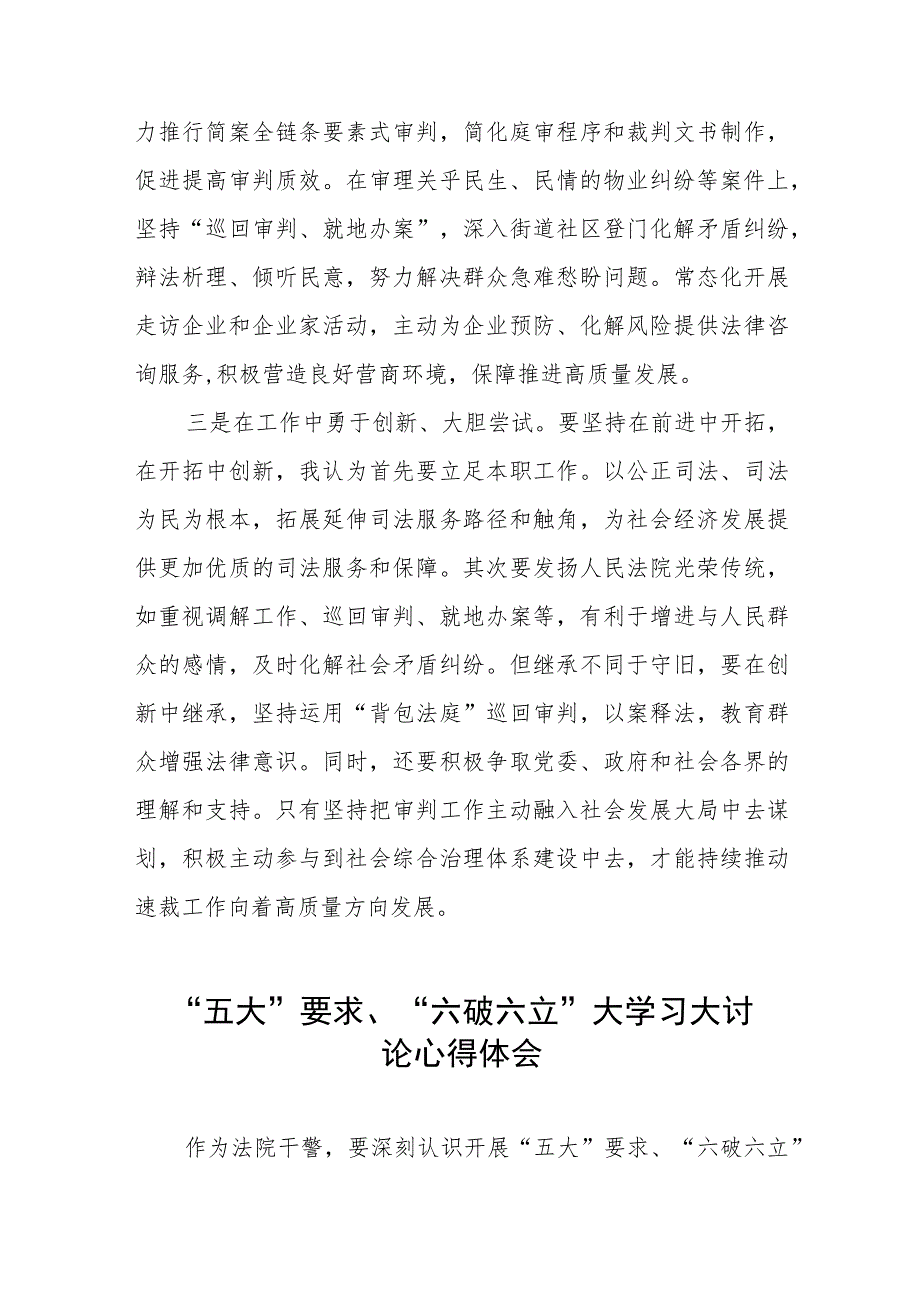 力推行简案全链条要素式审判，简化庭审程序和裁判文书制作，
促进提高审判质效。在审理关乎民生、民情的物业纠纷等案件上，
坚持“巡回审判、就地办案”，深入街道社区登门化解矛盾纠纷，
辩法析理、倾听民意，努力解决群众急难愁盼问题。常态化开展
走访企业和企业家活动，主动为企业预防、化解风险提供法律咨
询服务,积极营造良好营商环境，保障推进高质量发展。
三是在工作中勇于创新、大胆尝试。要坚持在前进中开拓，
在开拓中创新，我认为首先要立足本职工作。以公正司法、司法
为民为根本，拓展延伸司法服务路径和触角，为社会经济发展提
供更加优质的司法服务和保障。其次要发扬人民法院光荣传统，
如重视调解工作、巡回审判、就地办案等，有利于增进与人民群
众的感情，及时化解社会矛盾纠纷。但继承不同于守旧，要在创
新中继承，坚持运用“背包法庭”巡回审判，以案释法，教育群
众增强法律意识。同时，还要积极争取党委、政府和社会各界的
理解和支持。只有坚持把审判工作主动融入社会发展大局中去谋
划，积极主动参与到社会综合治理体系建设中去，才能持续推动
速裁工作向着高质量方向发展。
“五大”要求、“六破六立”大学习大讨
论心得体会
作为法院干警，要深刻认识开展“五大”要求、“六破六立”